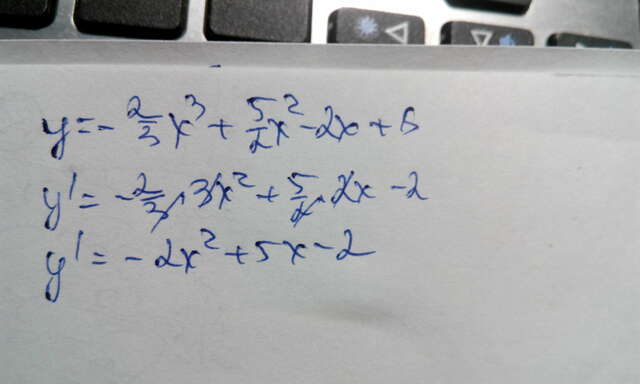 y = - 2/3 x³ + 5/2 x² - 2x + 6
y' = - 2/3 · 3x² + 5/2 · 2x - 2
y' = - 2x² + 5x - 2